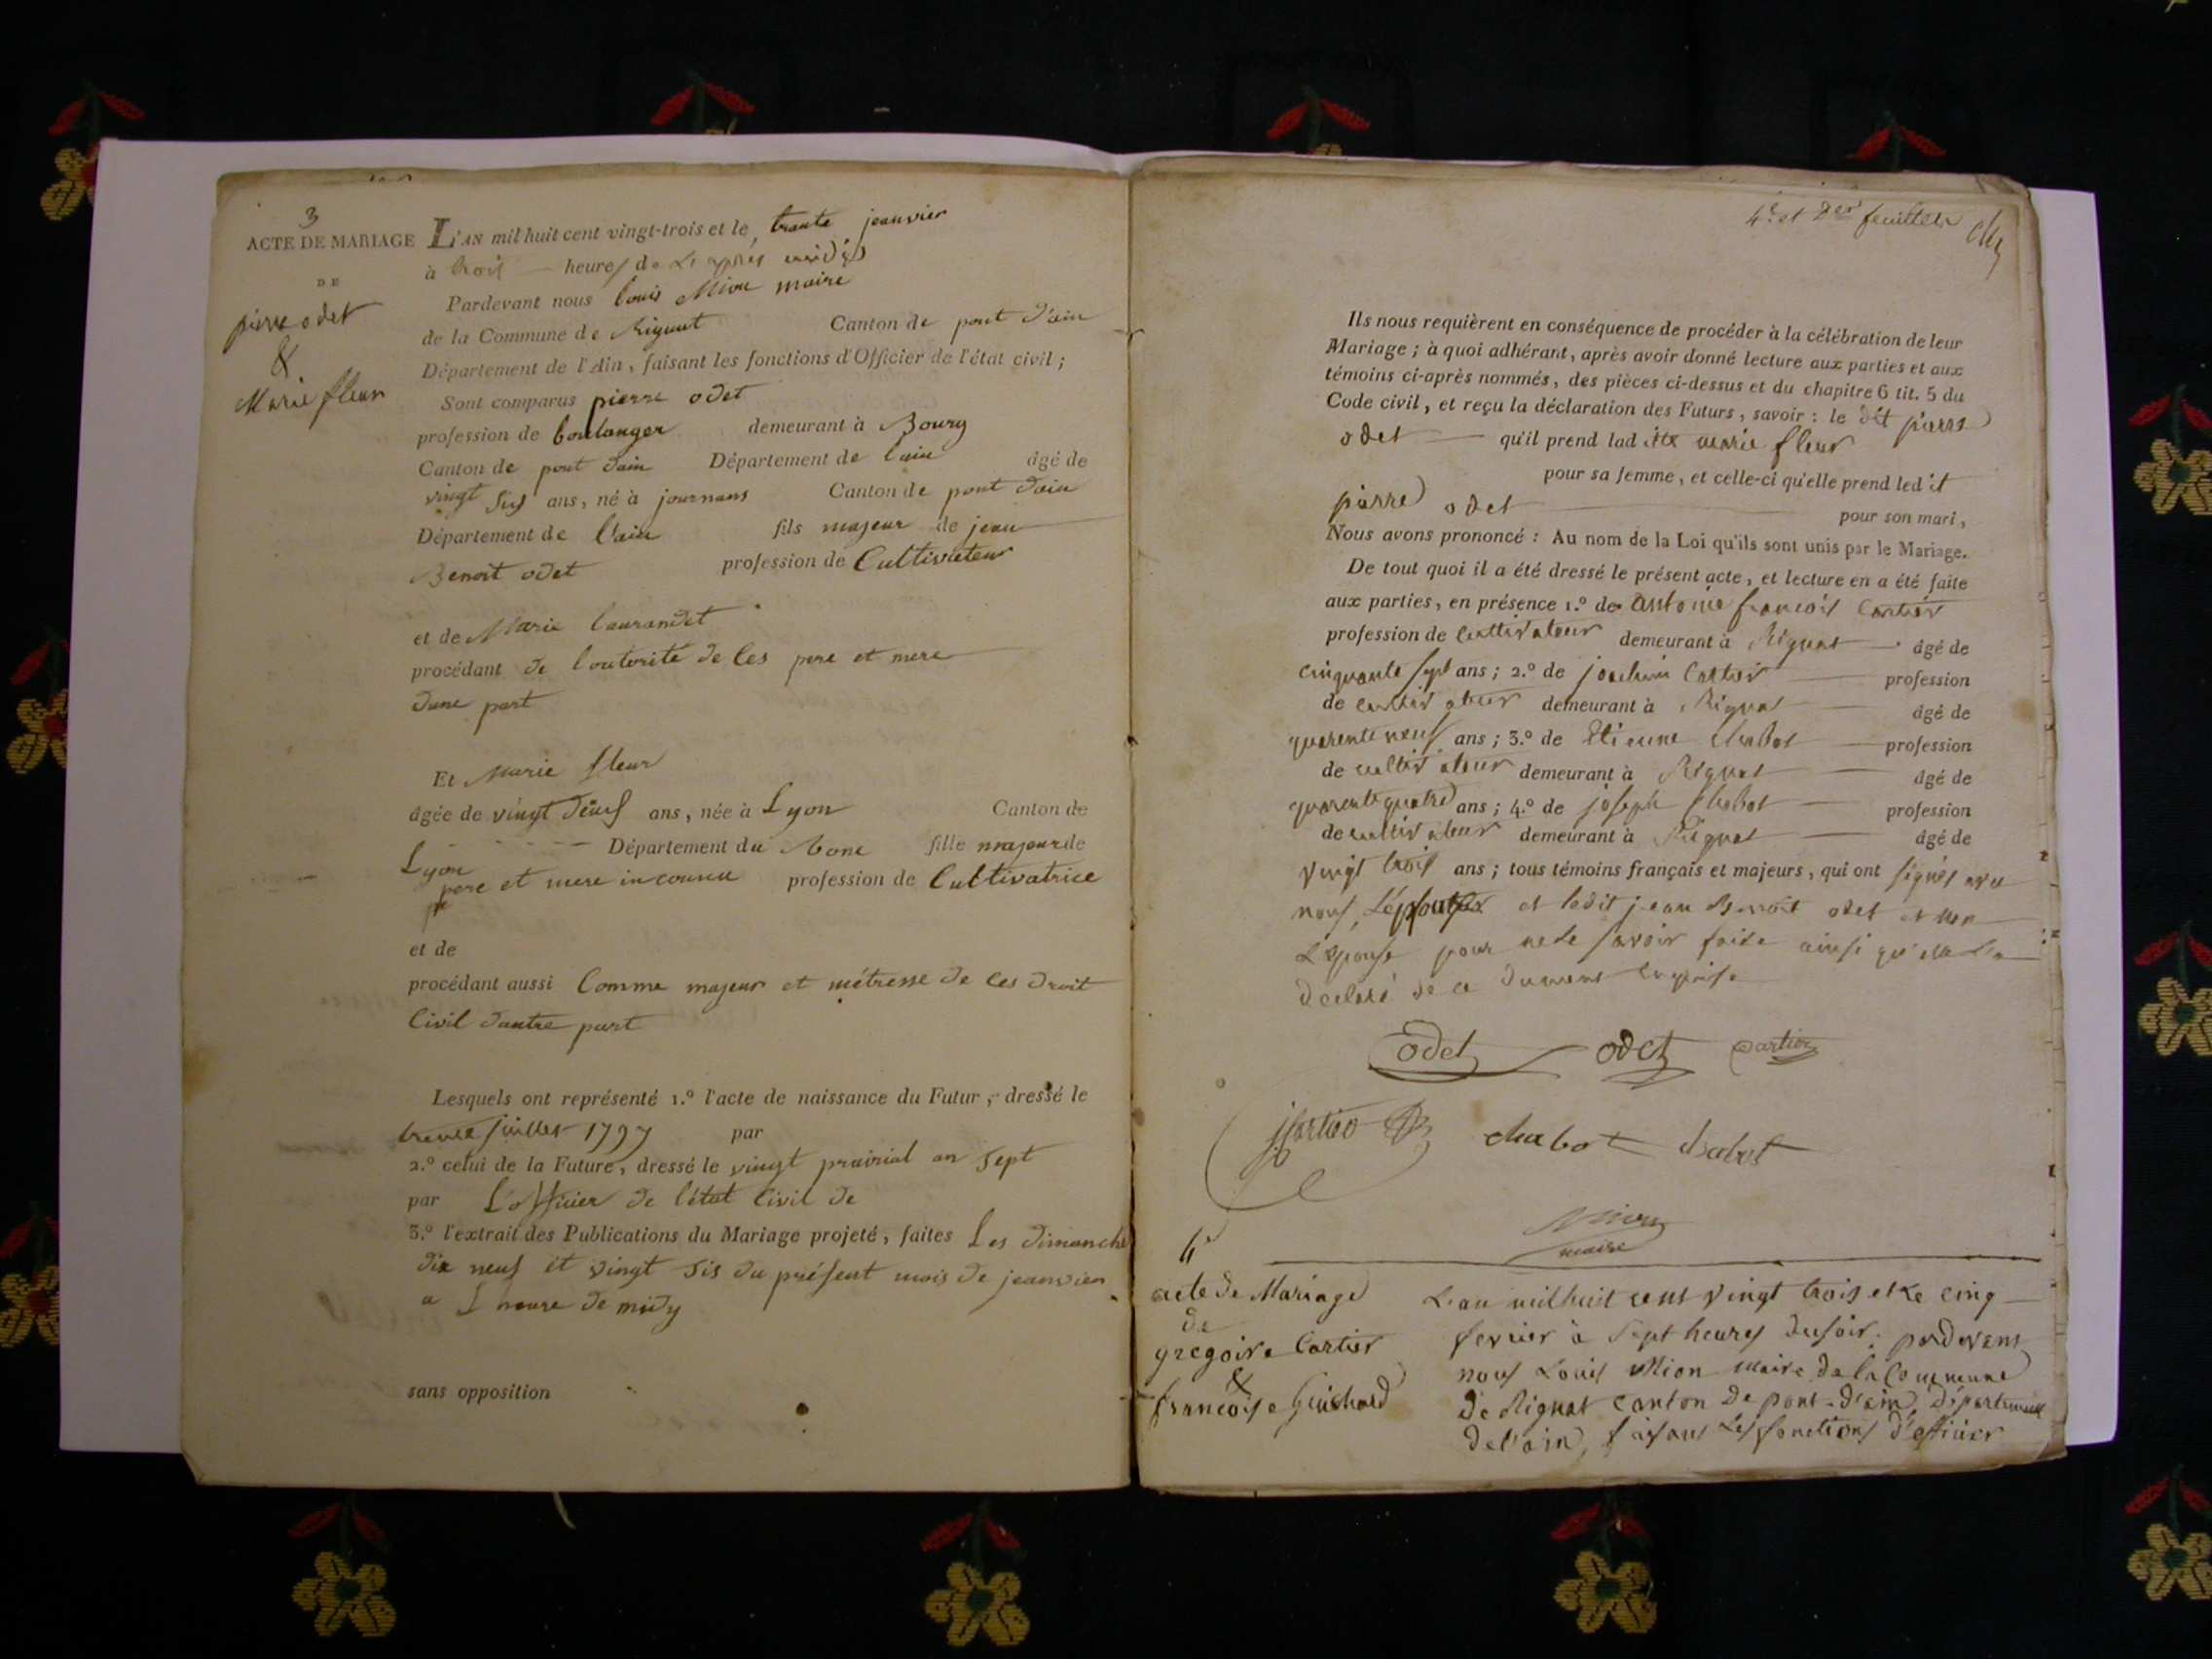 3
ACTE DE MARIAGE
DE
pierre odet
&
Marie fleur
L'AN mil huit cent vingt-trois et le, trante jeanvier
à trois heures de L'apres midi
Pardevant nous louis Mion maire
de la Commune de Rignat Canton de pont d'ain
Département de l'Ain, faisant les fonctions d'Officier de l'état civil;
Sont comparus pierre odet
profession de boulanger demeurant à Bourg
Canton de pont dain Département de lain âgé de
vingt sis ans, né à journans Canton de pont dain
Département de lain fils majeur de jean
Benoit odet profession de Cultivateur
et de Marie laurandet
procédant de loutorité de ces pere et mere
dune part
Et Marie fleur
âgée de vingt ans, née à Lyon Canton de
Lyon Département du Rone fille majeur de
pere et mere inconnu profession de Cultivatrice
et de
procédant aussi Comme majeur et métresse de ces droit
Civil dautre part
Lesquels ont représenté 1.° l'acte de naissance du Futur, dressé le
juillet 1797 par
2.° celui de la Future, dressé le vingt prairial an sept
par L'officier de létat Civil de
3.° l'extrait des Publications du Mariage projeté, faites Les dimanche
dix neuf et vingt sis du présent mois de jeanvier
a L heure de midy
sans opposition
4.e et feuillets
Ils nous requièrent en conséquence de procéder à la célébration de leur
Mariage; à quoi adhérant, après avoir donné lecture aux parties et aux
témoins ci-après nommés, des pièces ci-dessus et du chapitre 6 tit. 5 du
Code civil, et reçu la déclaration des Futurs, savoir: le dit pierre
odet qu'il prend lad ite marie fleur
pour sa femme, et celle-ci qu'elle prend led it
pierre odet pour son mari,
Nous avons prononcé: Au nom de la Loi qu'ils sont unis par le Mariage.
De tout quoi il a été dressé le présent acte, et lecture en a été faite
aux parties, en présence 1.° de antoine françois Cartier
profession de cultivateur demeurant à Rignat âgé de
cinquante sept ans; 2.° de joachim Cartier profession
de cultivateur demeurant à Rignat âgé de
quarente neuf ans; 3.° de Etienne Chabot profession
de cultivateur demeurant à Rignat âgé de
quarente quatre ans; 4.° de joseph Chabot profession
de cultivateur demeurant à Rignat âgé de
vingt trois ans; tous témoins français et majeurs, qui ont signés avec
nous, L'epoux et ledit jean Benoit odet et non
L'Epouse pour ne le savoir faire ainsi qu'elle L'a
declaré de ce dument enquise
odet odet Cartier
jCartier chabot chabot
Mion
maire
4e
acte de Mariage
de
gregoire Cartier
&
francoise Guichard
L'an mil huit cent vingt trois et Le cinq
fevrier à sept heures du soir. pardevant
nous Louis Mion maire de la Commune
de Rignat canton de pont-d'ain, Département
de l'ain, faisant Les fonctions d'officier